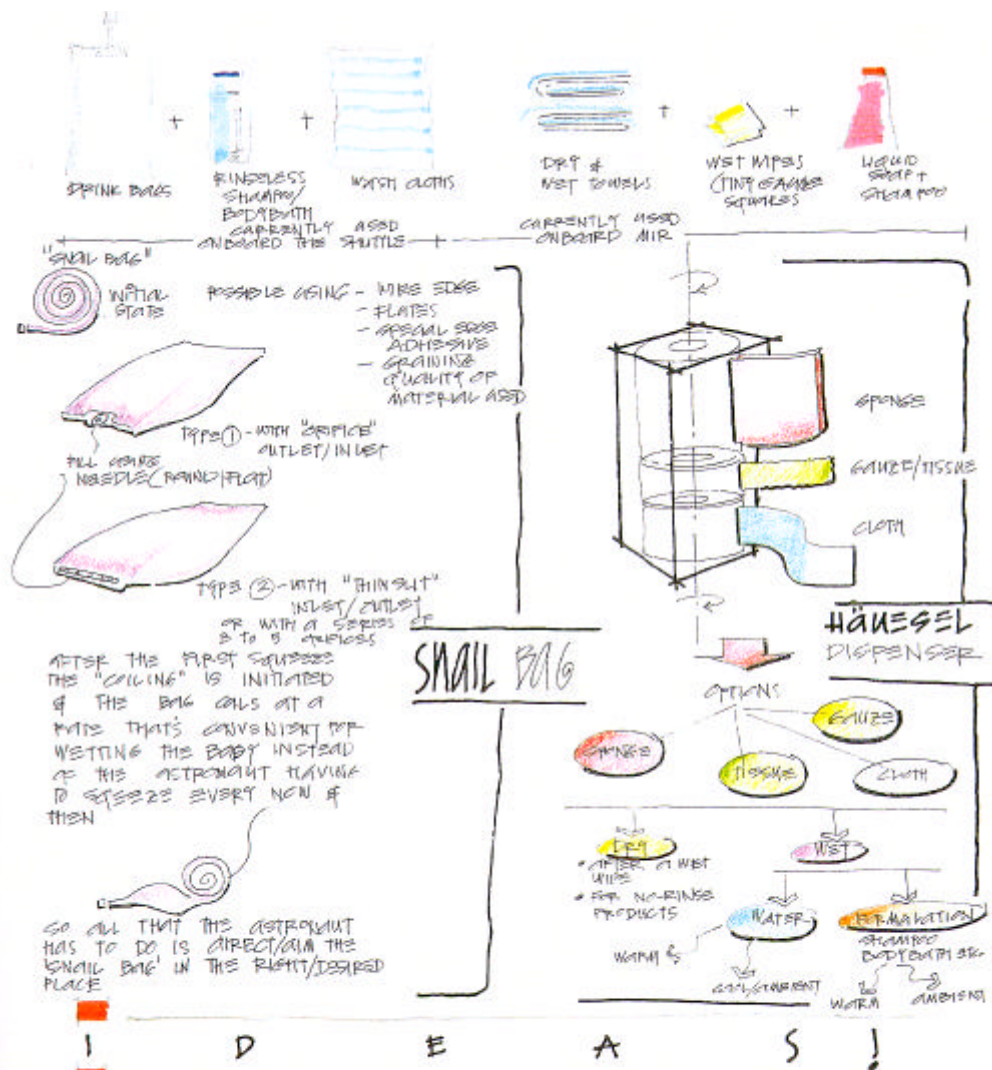 DRINK BAGS
+
RINSELESS
SHAMPO/
BODYBATH
+
WASH CLOTHS
CURRENTLY USED
ONBOARD THE SHUTTLE
DRY &
WET TOWELS
+
WET WIPES
(TINY GAUZE
SQUARES
+
LIQUID
SOAP +
SHAMPOO
CURRENTLY USED
ONBOARD MIR
"SNAIL BAG"
INITIAL
STATE
POSSIBLE USING - WIRE EDGE
- PLATES
- SPECIAL EDGE
ADHESIVE
- GRAINING
QUALITY OF
MATERIAL USED
TYPE 1 - WITH "ORIFICE"
OUTLET/INLET
FILL USING
NEEDLE (ROUND/FLAT)
TYPE 2 - WITH "THIN SLIT"
INLET/OUTLET
OR WITH A SERIES OF
3 TO 5 ORIFICES
AFTER THE FIRST SQUEEZE
THE "COILING" IS INITIATED
& THE BAG COILS AT A
RATE THAT'S CONVENIENT FOR
WETTING THE BODY INSTEAD
OF THE ASTRONAUT HAVING
TO SQEEZE EVERY NOW &
THEN
SO ALL THAT THE ASTRONAUT
HAS TO DO IS DIRECT/AIM THE
'SNAIL BAG' IN THE RIGHT/DESIRED
PLACE
SNAIL BAG
SPONGE
GAUZE/TISSUE
CLOTH
HÄUESEL
DISPENSER
OPTIONS
GAUZE
SPONGE
TISSUE
CLOTH
DRY
• AFTER A WET
WIPE
• FOR NO-RINSE
PRODUCTS
WET
WATER
WARM &
COOL/AMBIENT
FORMULATION
SHAMPOO
BODYBATH ETC
WARM
AMBIENT
I D E A S !